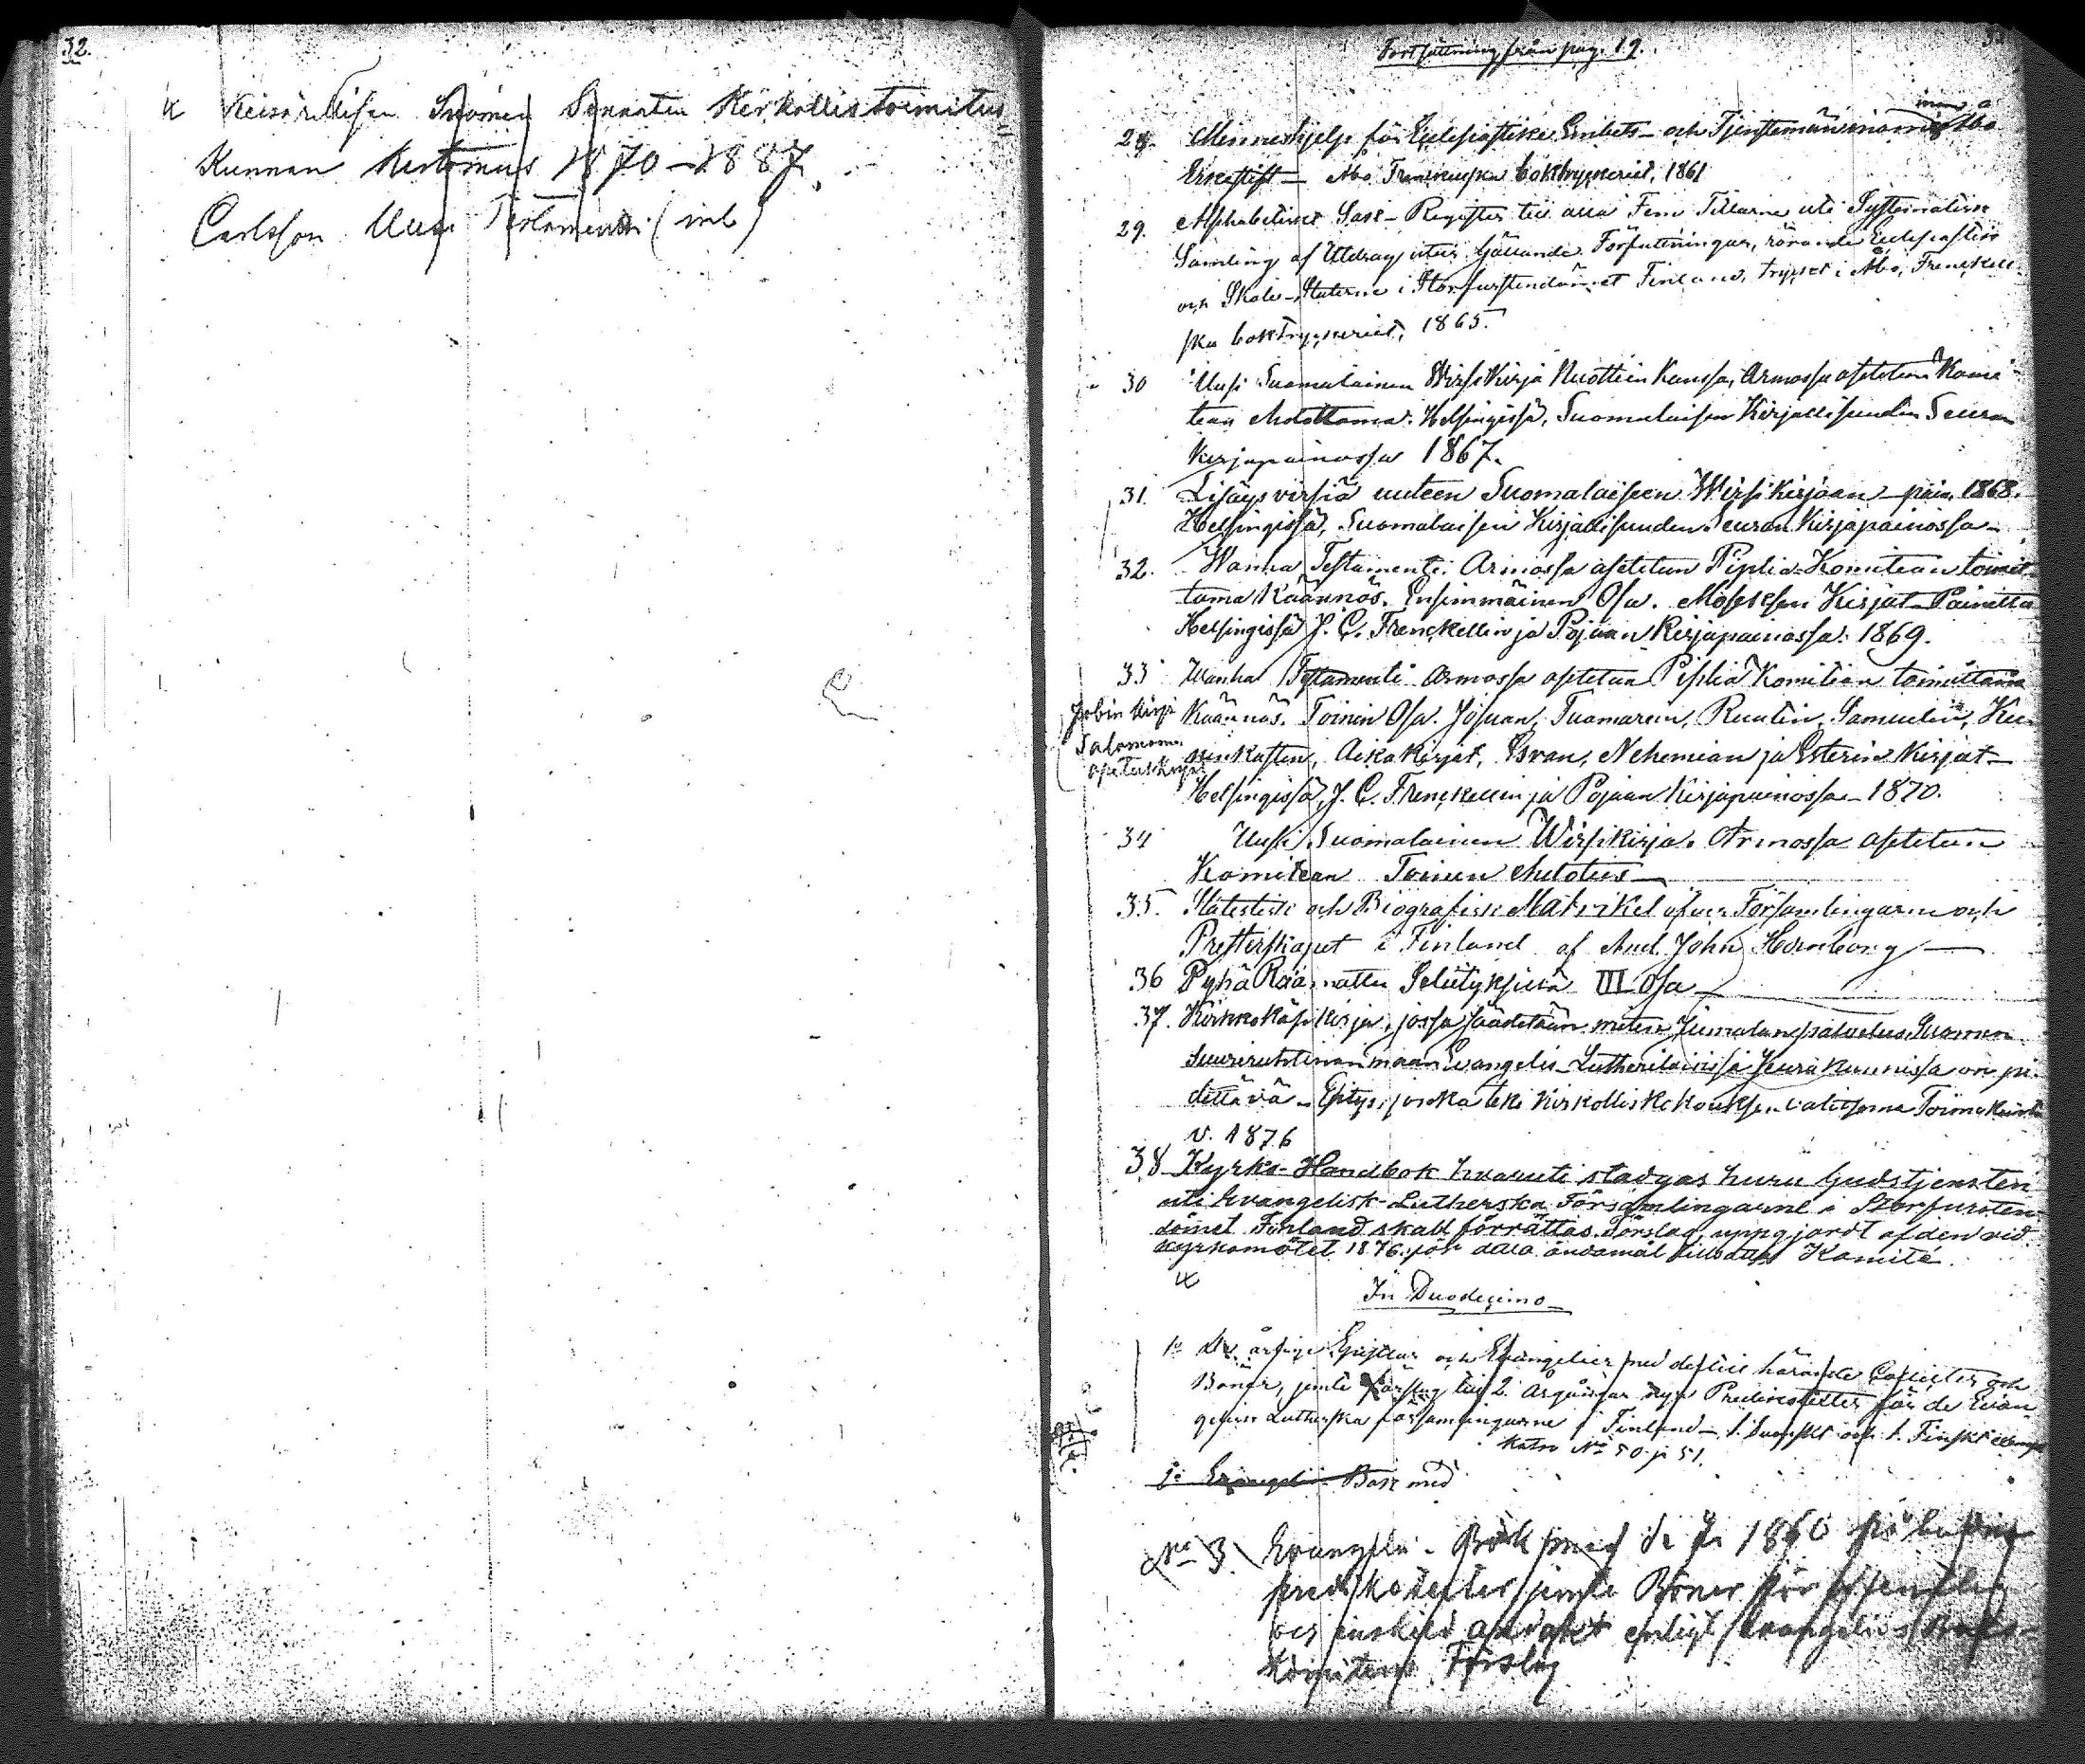 32.
Keisarillisen Suomen Senaatin Kirkollistoimitus
Kunnan Kertomus 1870-1887.
Carlsson Uusi Testamentti (inb)
Fortsättning från pag. 19.
28. Minneshjelp för Ecklesiastike Embets- och Tjenstemän inom Åbo
Erkestift - Åbo Frenckellska boktryckeriet, 1861
29. Alphabetiskt Sak-Register till alla Fem Titlarne uti Systematisk
Samling af Utdrag utur Gällande Författningar, rörande Ecklesiastik
och Skole-Staterne i Storfurstendömet Finland, tryckt i Åbo, Frenckell-
ska boktryckeriet, 1865.
30 Uusi Suomalainen Wirsikirja Nuottein Kanssa, Armossa asetetun Komi-
tean ehdottama. Helsingissä, Suomalaisen Kirjallisuuden Seuran
Kirjapainossa 1867.
31. Lisäys virsiä uuteen Suomalaiseen Wirsikirjaan - pain. 1868.
Helsingissä, Suomalaisen Kirjallisuuden Seuran Kirjapainossa -
32. Wanha Testamenti Armossa asetetun Piplia-Komitean toimit-
tama Käännös. Ensimmäinen Osa. Moseksen Kirjat - Painettu
Helsingissä J. C. Frenckellin ja Pojan Kirjapainossa. 1869.
33 Wanha Testamenti Armossa asetetun Piplia Komitean toimittama
Jobin kirja
Käännös. Toinen Osa. Josuan, Tuomarein, Ruutin, Samuelin, Ku-
Salomonin
opetuskirja
ninkasten, Aikakirjat, Esran, Nehemian ja Esterin Kirjat -
Helsingissä, J. C. Frenckellin ja Pojan Kirjapainossa - 1870.
34 Uusi Suomalainen Wirsikirja. Armossa asetetun
Komitean Toinen ehdotus -
35. Statistisk och Biografisk Matrikel öfver Församlingarne och
Presterskapet i Finland af And. John Hornborg -
36 Pyhä Raamattu Selityksinä III Osa -
37. Kirkkokäsikirja, jossa säädetään miten Jumalanpalvelus Suomen
Suuriruhtinanmaan Evangelis-Lutherilaisissa Seurakunnissa on pi-
dettävä - Esitys, jonka teki kirkolliskokouksen valitsema Toimikunta
v. 1876
38 Kyrko-Handbok hvaruti stadgas huru Gudstjensten
uti Evangelisk-Lutherska Församlingarne i Storfursten-
dömet Finland skall förrättas. Förslag, uppgjordt af den vid
kyrkomötet 1876 för detta ändamål tillsatta Komité.
In Duodecimo
1o De årliga Epistlar och Evangelier med dertill hörande Collecter och
Böner, jemte Förslag till 2 Årgångar nya Predikotexter för de Evan-
geliskt Lutherska församlingarne i Finland - 1. Svenskt och 1. Finskt exempl
Katso No 50 ja 51.
Evangelii Bok med
No 3. Evangelii-Bok med de år 1860 påbudna
predikotexter jemte Böner för offentlig
och enskild andakt enligt Evangelii-Boks-
Komiténs Förslag